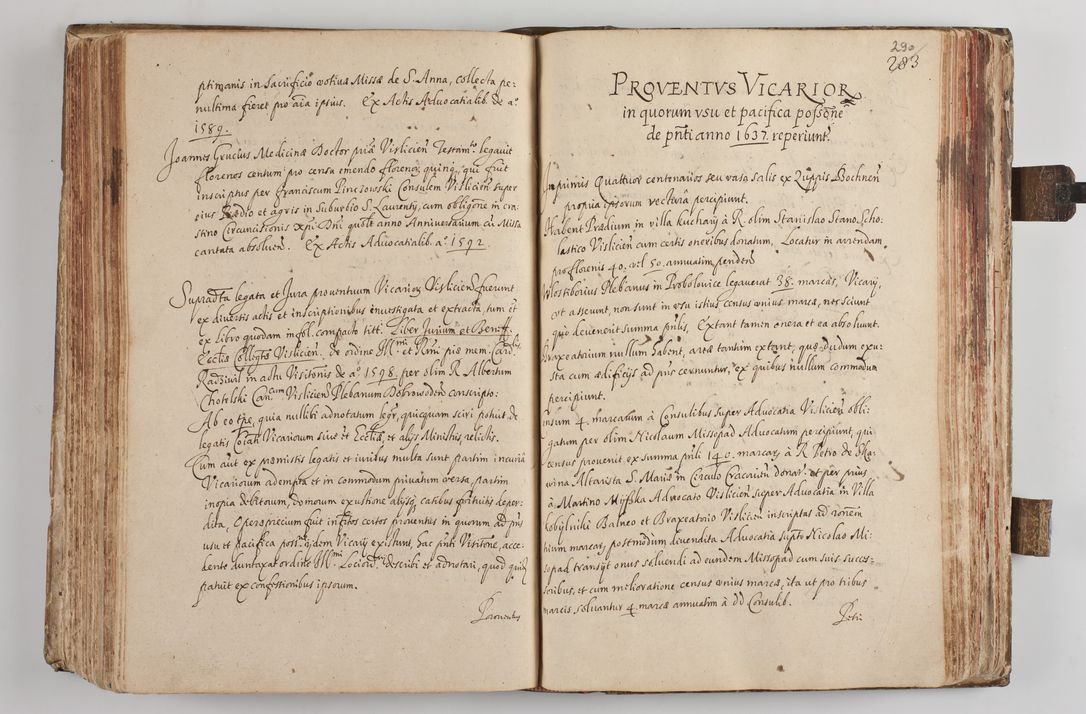 ptimanis in Sacrificio votiuæ Missæ de S. Anna, collecta pe-
nultima fieret pro aĩa ipsius. Ex Actis Aduocatialib. de aº
1589.
Joannes Grucius Medicinæ Doctor priã Vislicien̄ Testamto legauit
florenos centum pro censu emendo florenor̨ quinq̨, qui fuit
inscriptus per Franciscum Pinczowski Consulem Vislicien̄ super
eius Prædio et agris in Suburbio S. Laurentij, cum obligõne in cra-
stino Circumcisionis Xp̃i Dñi quolt anno Anniuersarium cũ Missa
cantata absoluen̄. Ex Actis Aduocatialib. aº 1592.
Supradcta legata et Jura prouentuum Vicarior̨ Vislicien̄ fuerunt
ex diuersis actis et inscriptionibus inuestigata et extracta, tum et
ex Libro quodam in fol. compacto titt. Liber Jurium et Beneff.
Ecclĩæ Collegtæ Vislicien̄. de ordine Illmi et Rmi piæ mem. Cardlis
Radziuil in actu Visitõnis de aº 1598. per olim R. Albertum
Chotelski Cancum Vislicien̄ Plebanum Dobrowoden̄ conscripto:
Ab eo tpe, quia nullibi adnotatum legr, quicquam sciri potuit de
legatis Coĩtati Vicariorum siue et Ecclĩæ, et alijs Ministris, relictis.
Cum aut ex præmissis legatis et iuribus multa sunt partim incuria
Vicariorum adempta et in commodum priuatum versa, partim
inopia debitorum, domorum exustione alijsq̨ casibus fortuitis deper-
dita, Operæprecium fuit infrãtos certos prouentus in quorum ad prñs
usu et pacifica possne ijdem Vicarij existunt, hac prñti Visitõne, acce-
dente duntaxat ordine Illmi Loci ord. describi et adnotari, quod quidẽ
patuit ex confessionibus ipsorum.
Prouentus
290
283
PROVENTVS VICARIOR̨
in quorum vsu et pacifica possõne
de prñti anno 1637. reperiuntr
Inprimis Quattuor centenarios seu vasa salis ex Zuppis Bochnen̄
propria ipsorum vectura percipiunt.
Habent Prædium in villa Kuchary à R. olim Stanislao Stano Scho-
lastico Vislicien̄ cum certis oneribus donatum, Locatur in arrendam
pro florenis 40. vel 50. annuatim penden̄
Wlostiborius Plebanus in Probolowice legauerat 38. marcas, Vicarij,
vt asserunt, non sunt in vsu istius census vnius marcæ, nec sciunt
quo deuenerit summa prñlis, Extant tamen onera et ea absoluunt.
Braxeatorium nullum habent, area tantum extant, quæ dudum exu-
sta cum ædificijs ad prñs cernuntur, ex quibus nullum commodum
percipiunt.
Censum 4. marcarum à Consulibus super Aduocatia Vislicien̄ obli-
gatum per olim Nicolaum Missopad Aduocatum percipiunt, qui
census prouenit ex summa prñli 140. marcar̨ à R. Petro de Ska-
wina Altarista S. Mariæ in Circulo Cracouien̄ donat. et per prius
à Martino Myszka Aduocato Vislicien̄ super Aduocatia in Villa
Kobijlniki Balneo et Braxeatorio Vislicien̄ inscriptus ad ronem
trium marcar̨, postmodum diuendita Aduocatia suprãto Nicolao Mi-
sopad transijt onus soluendi ad eundem Missopad cum suis succes-
soribus, et cum melioratione census vnius marcæ, ita ut pro tribus
marcis soluantur 4. marcæ annuatim à DD Consulib.
Petri